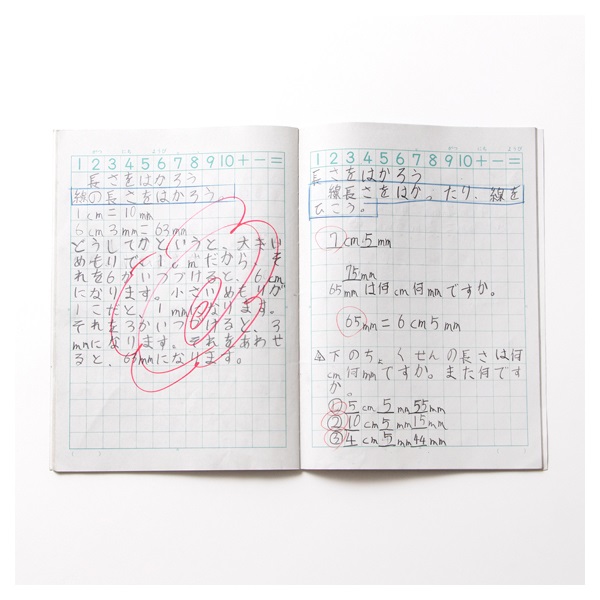 1 2 3 4 5 6 7 8 9 10 + − =
長さをはかろう
線の長さをはかろう
1cm=10mm
6cm3mm=63mm
どうしてかというと、大きい
めもりで、1cmだから、そ
れを6かいつづけると、6cm
になります。小さいめもりが
1こだと、1mmになります。
それを3かいつづけると、3
mmになります。それをあわせ
ると、63mmになります。
1 2 3 4 5 6 7 8 9 10 + − =
長さをはかろう
線長さをはかったり、線を
ひこう。
7cm5mm
75mm
65mmは何cm何mmですか。
65mm=6cm5mm
下のちょくせんの長さは何
cm何mmですか。また何mmです
か。
① 5cm 5mm 55mm
② 10cm 5mm 15mm
③ 4cm 5mm 44mm